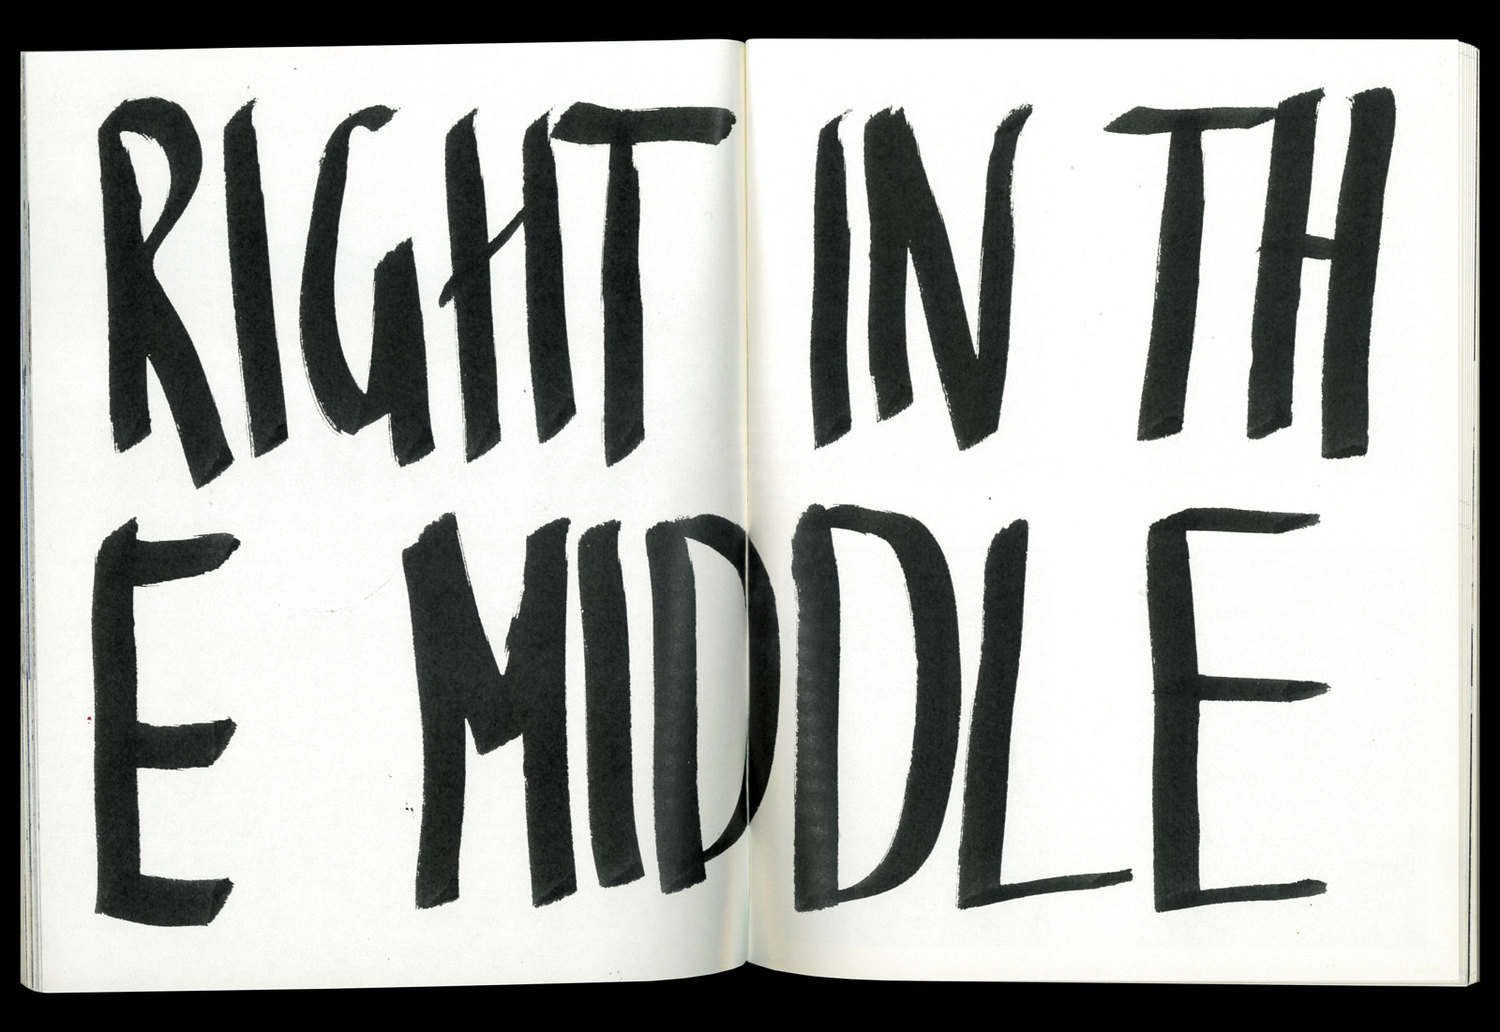 RIGHT IN TH
E MIDDLE